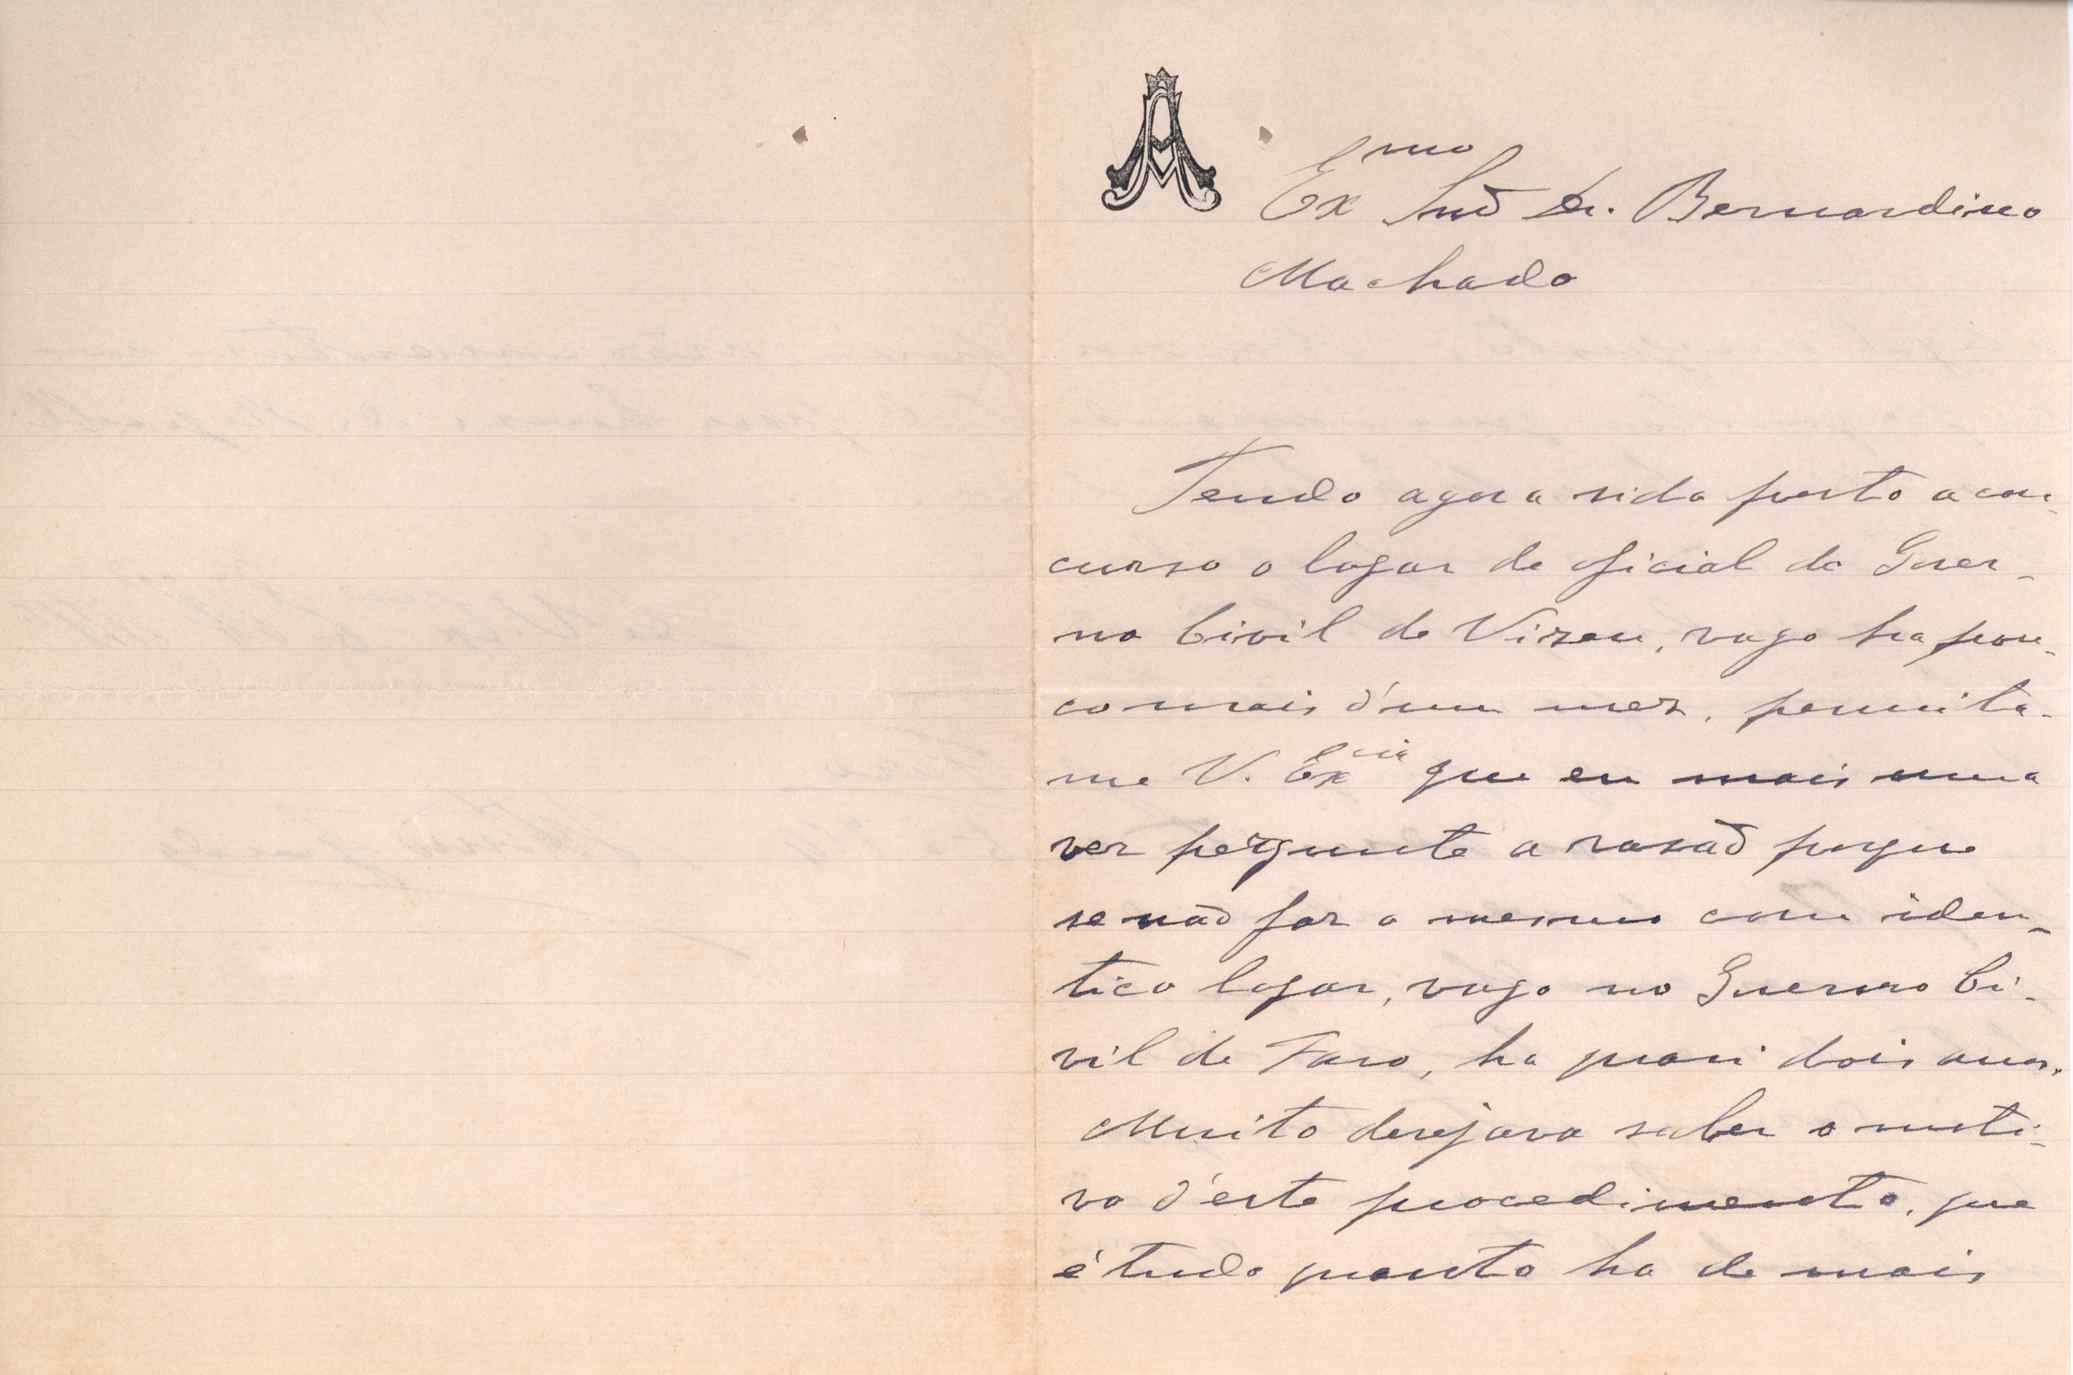 A
Exmo Snr Dr. Bernardino
Machado
Tendo agora sido posto a con-
curso o logar de oficial do Gover-
no Civil de Vizeu, vago ha pou-
co mais d'um mez, permita-
me V. Excia que eu mais uma
vez pergunte a rasaõ porque
se naõ faz o mesmo com iden-
tico logar, vago no Governo Ci-
vil de Faro, ha quasi dois anos.
Muito desejava saber o moti-
vo d'este procedimento, que
é tudo quanto ha de mais